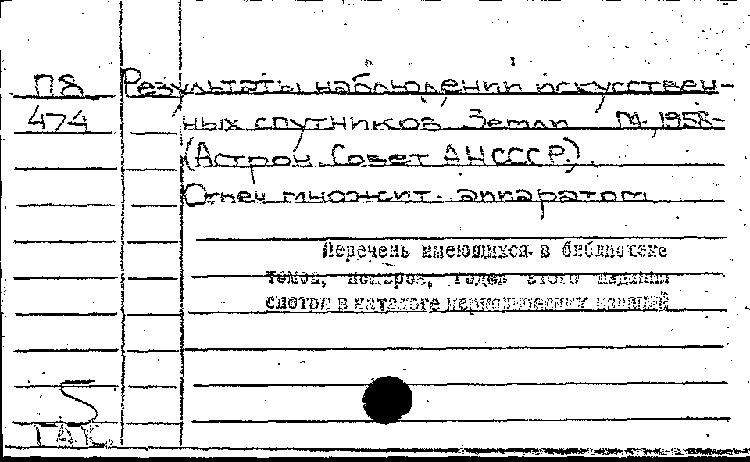 П8 Результаты наблюдений искусствен-
474 ных спутников Земли М. 1958-
(Астрон. Совет АН СССР.).
Отпеч множит. аппаратом
Перечень имеющихся в библиотеке
томов, номеров, годов этого издания
смотри в каталоге периодических изданий
5